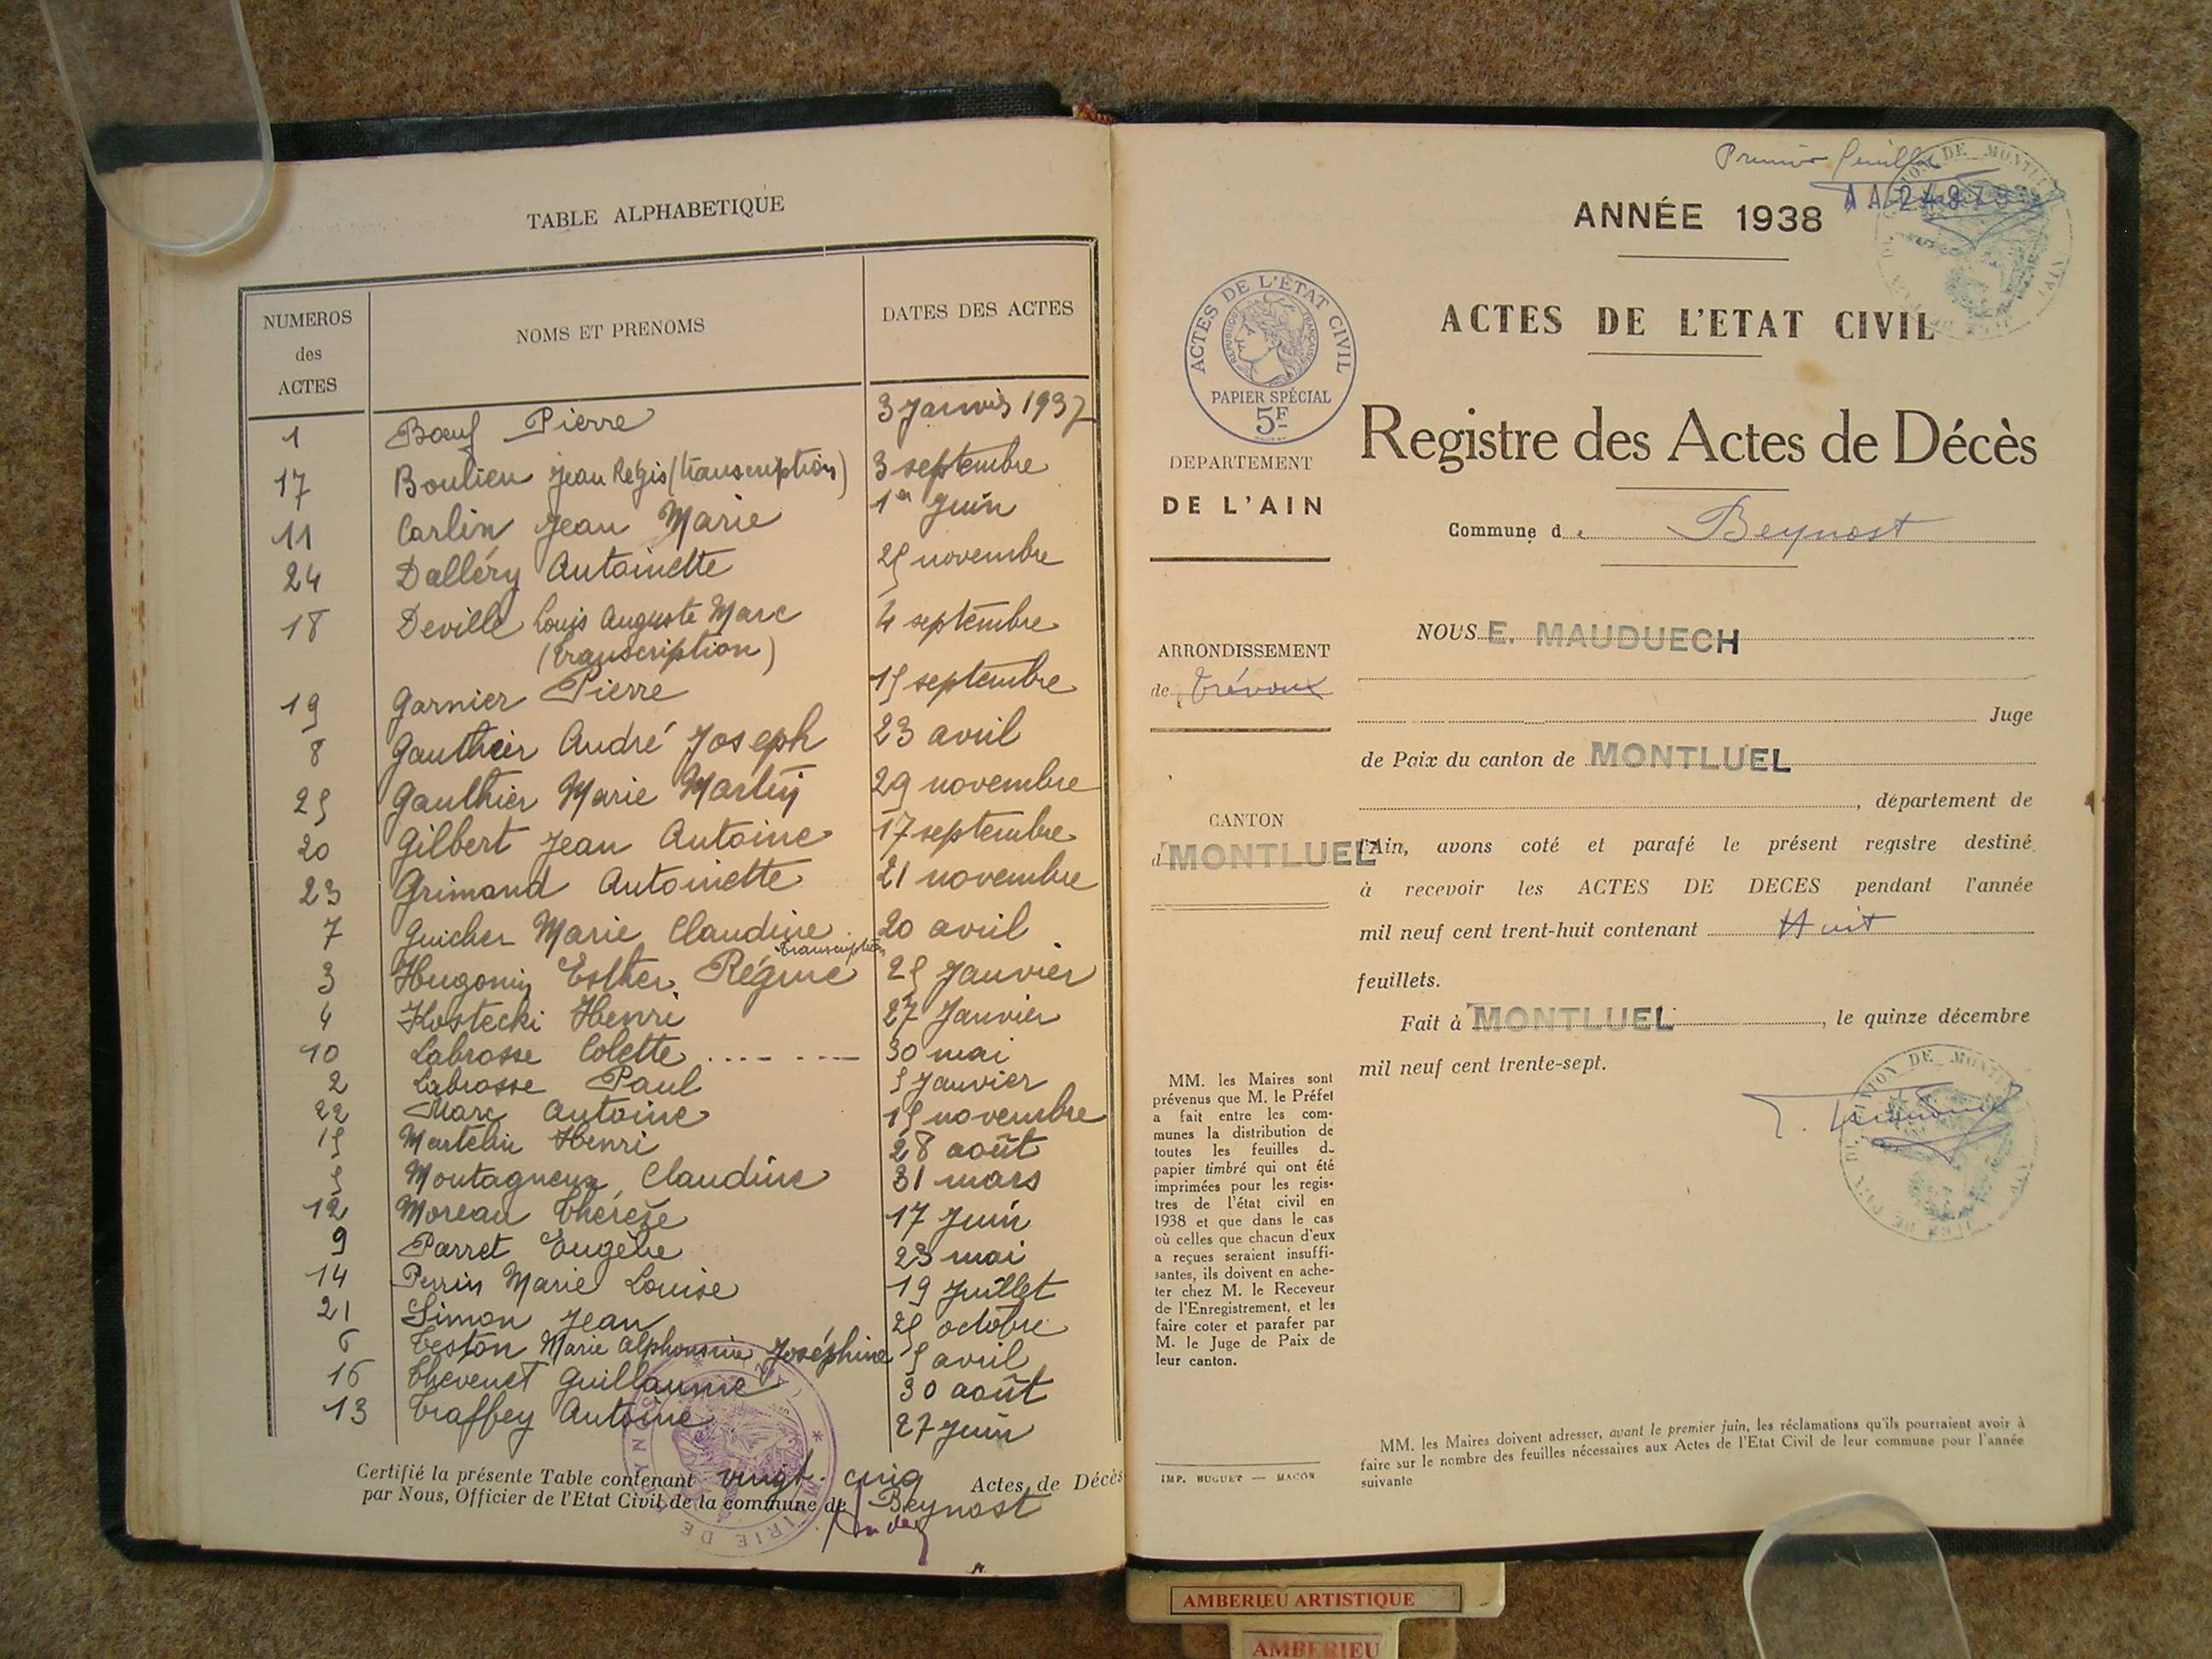 TABLE ALPHABETIQUE
NUMEROS des ACTES
NOMS ET PRENOMS
DATES DES ACTES
1 Bœuf Pierre 3 Janvier 1937
17 Boulieu Jean Régis (transcription) 3 septembre
11 Carlin Jean Marie 1er Juin
24 Dalléry Antoinette 25 novembre
18 Deville Louis Auguste Marc 4 septembre
(transcription)
19 Garnier Pierre 15 septembre
8 Gauthier André Joseph 23 avril
25 Gauthier Marie Martin 29 novembre
20 Gilbert Jean Antoine 17 septembre
23 Grimand Antoinette 21 novembre
7 Guicher Marie Claudine 20 avril
transcription
3 Hugonin Esther Régine 25 Janvier
4 Kostecki Henri 27 Janvier
10 Labrosse Colette .... .... 30 mai
2 Labrosse Paul 5 Janvier
22 Marc Antoine 15 novembre
15 Martelin Henri 28 août
5 Montagneux Claudine 31 mars
12 Moreau Thérèse 17 Juin
9 Parret Eugène 23 mai
14 Perrin Marie Louise 19 Juillet
21 Simon Jean 25 octobre
6 Teston Marie Alphonsine Joséphine 5 avril
16 Thevenet Guillaume 30 août
13 Traffey Antoine 27 Juin
Certifié la présente Table contenant vingt-cinq Actes de Décès
par Nous, Officier de l'Etat Civil de la commune de Beynost
MAIRIE DE BEYNOST * (AIN) *
Premier feuillet
AA 24979
ANNÉE 1938
ACTES DE L'ETAT CIVIL
Registre des Actes de Décès
Commune de Beynost
ACTES DE L'ÉTAT CIVIL
RÉPUBLIQUE FRANÇAISE
PAPIER SPÉCIAL
5F
DEPARTEMENT
DE L'AIN
ARRONDISSEMENT
de Trévoux
CANTON
d MONTLUEL
NOUS E. MAUDUECH
Juge
de Paix du canton de MONTLUEL
, département de
l'Ain, avons coté et parafé le présent registre destiné
à recevoir les ACTES DE DECES pendant l'année
mil neuf cent trent-huit contenant Huit
feuillets.
Fait à MONTLUEL, le quinze décembre
mil neuf cent trente-sept.
MM. les Maires sont
prévenus que M. le Préfet
a fait entre les com-
munes la distribution de
toutes les feuilles d
papier timbré qui ont été
imprimées pour les regis-
tres de l'état civil en
1938 et que dans le cas
où celles que chacun d'eux
a reçues seraient insuffi-
santes, ils doivent en ache-
ter chez M. le Receveur
de l'Enregistrement, et les
faire coter et parafer par
M. le Juge de Paix de
leur canton.
IMP. HUGUET — MACON
MM. les Maires doivent adresser, avant le premier juin, les réclamations qu'ils pourraient avoir à
faire sur le nombre des feuilles nécessaires aux Actes de l'Etat Civil de leur commune pour l'année
suivante
AMBERIEU ARTISTIQUE
AMBERIEU